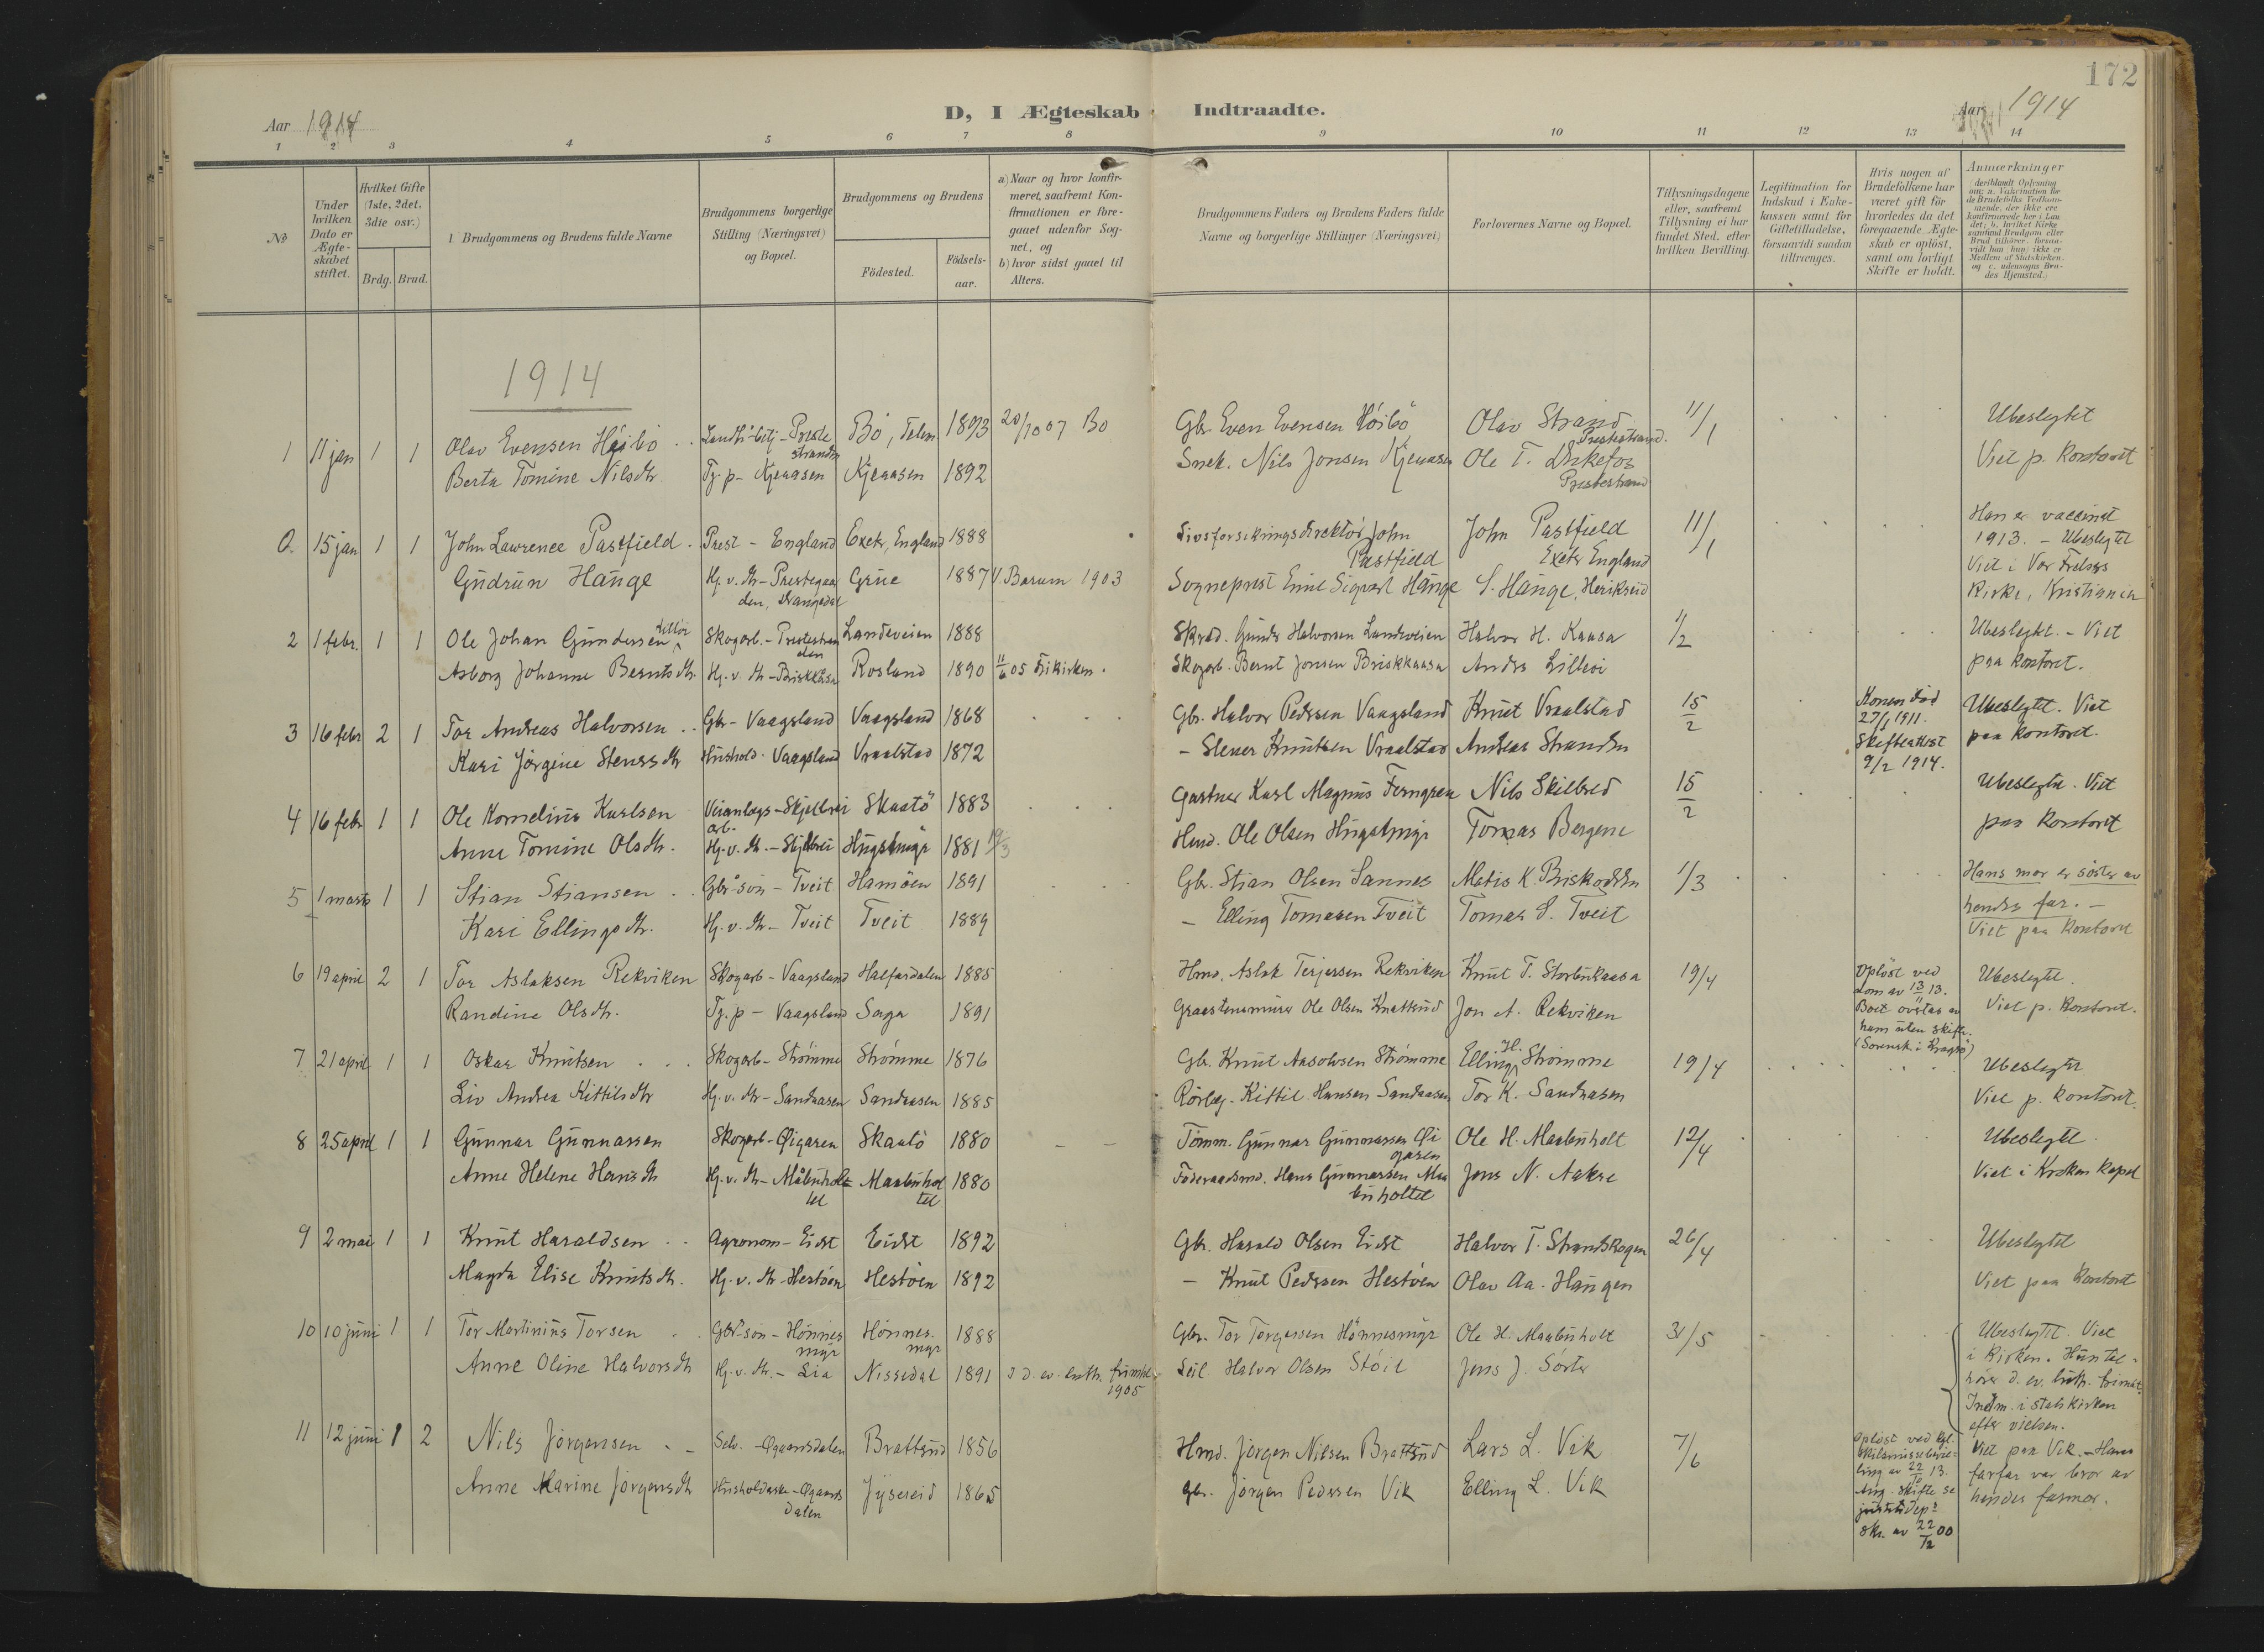 172
D, I Ægteskab Indtraadte.
Aar 1914
Aar 1914
1 2 3 4 5 6 7 8 9 10 11 12 13 14
No
Under hvilken Dato er Ægteskabet stiftet.
Hvilket Gifte (1ste, 2det. 3die osv.)
Brdg. Brud.
Brudgommens og Brudens fulde Navne
Brudgommens borgerlige Stilling (Næringsvei) og Bopæl.
Brudgommens og Brudens
Födested.
Födsels-aar.
a) Naar og hvor konfir-
meret, saafremt Kon-
firmationen er fore-
gaaet udenfor Sog-
net, og
b) hvor sidst gaaet til
Alters.
Brudgommens Faders og Brudens Faders fulde
Navne og borgerlige Stillinger (Næringsvei)
Forlovernes Navne og Bopæl.
Tillysningsdagene
eller, saafremt
Tillysning ei har
fundet Sted, efter
hvilken Bevilling.
Legitimation for
Indskud i Enke-
kassen samt for
Giftetilladelse,
forsaavidt saadan
tiltrænges.
Hvis nogen af
Brudefolkene har
været gift för
hvorledes da det
foregaaende Ægte-
skab er oplöst,
samt om lovligt
Skifte er holdt.
Anmærkninger
1914
1 11 jan 1 1 Olav Evensen Høibö Bö, Telem 1893 20/10 07 Bö Gbr. Even Evensen Høibö Olav Strand Prestestrand. 11/1 Ubeslegtet
Berta Tomine Nilsdtr. Tj. p - Kjeaasen Kjeaasen 1892 Snek. Nils Jonsen Kjeaasen Ole T. Prestestrand Viet p. Kontoret
0. 15 jan 1 1 John Lawrence Pastfield Prest - England Exeter, England 1888 Livsforsikringsdirektör John Pastfield John Pastfield Exeter England 11/1 Han er vaccinert 1913. - Ubeslegtet
Gudrun Hauge Hj. v. dtr - Prestegaarden, Drangedal Grue 1887 V. Bærum 1903 Sogneprest Emil Sigvart Hauge S. Hauge, Henikseid Viet i Vor Frelsers Kirke, Kristiania
2 1 febr. 1 1 Ole Johan Gundersen Lilleöi Skogarb. - Prestestranden Landeveien 1888 Gunder Halvorsen Landeveien Halvor H. Kaasa 1/2 Ubeslegtet. - Viet
Asborg Johanne Berntsdtr. Hj. v. dtr - Briskkaasa Rosland 1890 11/6 05 Frikirken. Skogarb. Bernt Jonsen Briskkaasa Anders Lilleöi paa kontoret.
3 16 febr 2 1 Tor Andreas Halvorsen Gbr - Vaagsland Vaagsland 1868 Gbr. Halvor Pedersen Vaagsland Knut Vraalstad 15/2 Konen död 27/1 1911. Skifteattest 9/2 1914. Ubeslegtet. Viet
Kari Jörgine Stenersdtr Hushold. Vaagsland Vraalstad 1872 - Stener Knutsen Vraalstad Andreas Stranden paa kontoret.
4 16 febr 1 1 Ole Kornelius Karlsen Veianlægsarb. - Skjelbrei Skaatö 1883 Gartner Karl Magnus Ferngren Nils Skilbred 15/2 Ubeslegtet. Viet
Anne Tomine Olsdtr. Hj. v. dtr. - Skjelbrei Hugstmyr 1881 Hmd. Ole Olsen Hugstmyr Tomas Bergene paa kontoret
5 1 marts 1 1 Stian Stiansen Gbr sön - Tveit Hamöen 1891 Gbr. Stian Olsen Sannes Matis K. Briskodden 1/3 Hans mor er söster av
Kari Ellingsdtr. Hj. v. dtr - Tveit Tveit 1889 - Elling Tomasen Tveit Tomas S. Tveit hendes far. - Viet paa kontoret
6 19 april 2 1 Tor Aslaksen Rekviken Skogarb - Vaagsland Halfardalen 1885 Hmd. Aslak Terjersen Rekviken Knut T. Storbukaasa 19/4 Oplöst ved dom av 13/11 13. Boet overtas av ham uten skifte. (Sorensk. i Kragerö) Ubeslegtet.
Randine Olsdtr. Tj. p - Vaagsland Saga 1891 Graastensmurer Ole Olsen Knattsund Jon A. Rekviken Viet p. Kontoret.
7 21 april 1 1 Oskar Knutsen Skogarb - Strömme Strömme 1876 Gbr. Knut Aasolvsen Strömme Elling H. Strömme 19/4 Ubeslegtet
Liv Andrea Kittilsdtr Hj. v. dtr - Sandaasen Sandaasen 1885 Kittil Hansen Sandaasen Tor K. Sandaasen Viet p. kontoret.
8 25 april 1 1 Gunnar Gunnarsen Skogarb - Öigasen Skaatö 1880 Tömm. Gunnar Gunnarsen Öigasen Ole H. Maabuholt 12/4 Ubeslegtet.
Anne Helene Hansdtr Hj. v. dtr - Maabuholtet Maabuholtet 1880 Föderaadsmd. Hans Gunnarsen Maabuholtet Jens N. Aakre Viet i Kroken kapel
9 2 mai 1 1 Knut Haraldsen Agronom - Eidet Eidet 1892 Gbr. Harald Olsen Eidet Halvor T. Strandskogen 26/4 Ubeslegtet
Magda Elise Knutsdtr. Hj. v. dtr - Hestöen Hestöen 1892 - Knut Pedersen Hestöen Olav Aa. Haugen Viet paa kontoret
10 10 juni 1 1 Tor Martinius Torsen Gbr sön - Hönnesmyr Hönnesmyr 1888 Gbr. Tor Torgersen Hönnesmyr Ole H. Maabuholt 31/5 Ubeslegtet. Viet i kirken. Hun tilhörer d. ev. luth. frimen. Indm. i statskirken efter vielsen.
Anne Oline Halvorsdtr Hj. v. dtr. - Lia Nissedal 1891 I d. ev. luth. 1905 Halvor Olsen Stöil Jens J. Sörter
11 12 juni 1 2 Nils Jörgensen Selv. - Ögaardsdalen Brattsund 1856 Hmd. Jörgen Nilsen Brattsund Lars L. Vik 7/6 Oplöst ved kgl. skilsmissebevilling av 22/10 13. Ang. skifte se justitsdep.s skr. av 22/12 00 Viet paa Vik. - Hans farfar var bror av hendes farmor.
Anne Marine Jörgensdtr Husholderske - Ögaardsdalen Jysereid 1865 Gbr. Jörgen Pedersen Vik Elling L. Vik